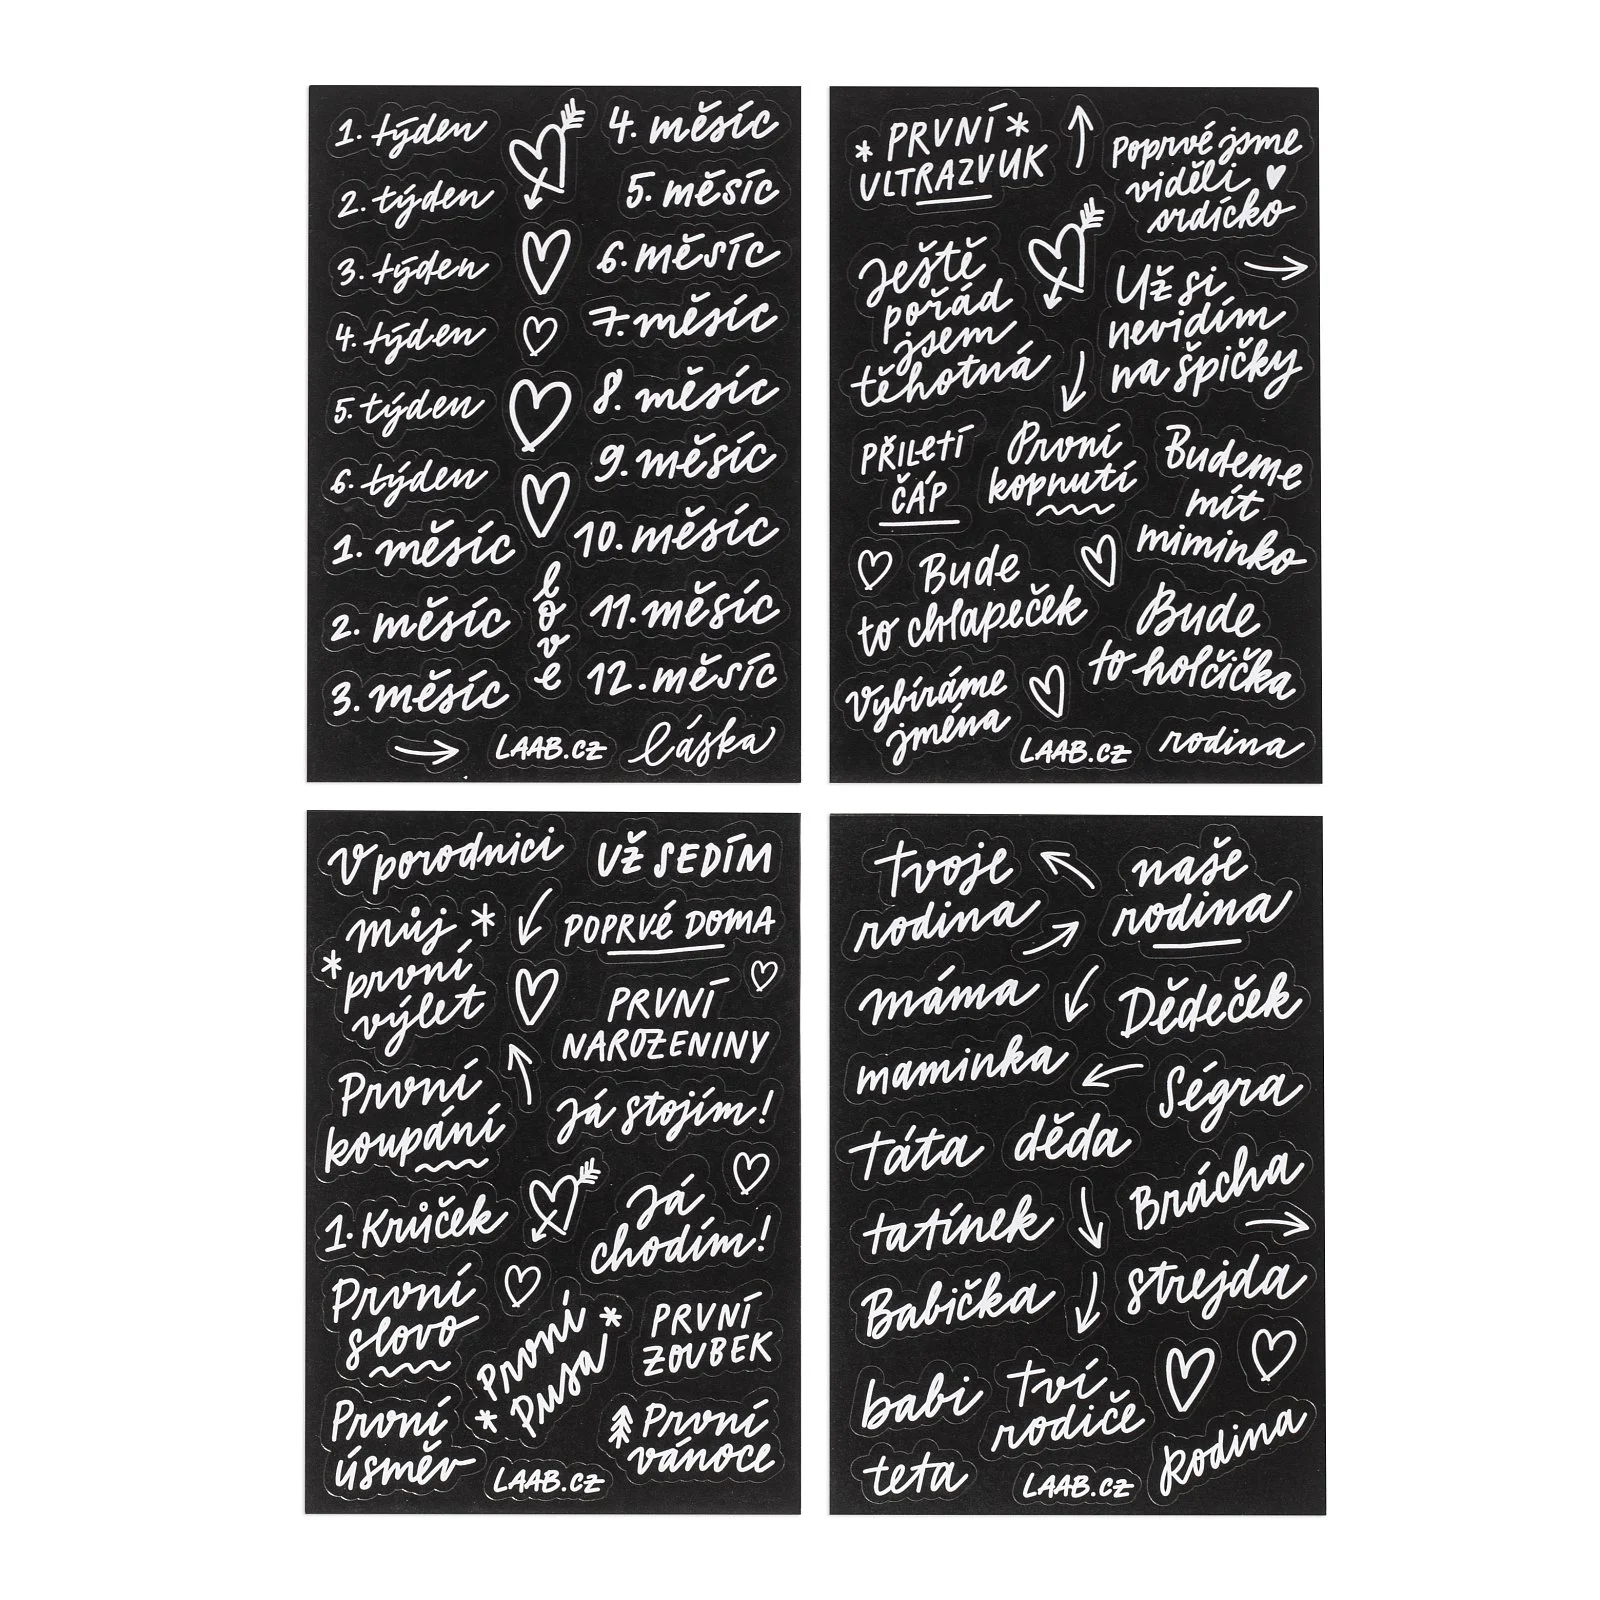 1. týden
2. týden
3. týden
4. týden
5. týden
6. týden
1. měsíc
2. měsíc
3. měsíc
l
o
v
e
4. měsíc
5. měsíc
6. měsíc
7. měsíc
8. měsíc
9. měsíc
10. měsíc
11. měsíc
12. měsíc
LAAB.CZ
láska
* PRVNÍ *
ULTRAZVUK
Poprvé jsme
viděli
srdíčko
Ještě
pořád
jsem
těhotná
Už si
nevidím
na špičky
PŘILETÍ
ČÁP
První
kopnutí
Budeme
mít
miminko
Bude
to chlapeček
Bude
to holčička
Vybíráme
jména
LAAB.CZ
rodina
V porodnici
UŽ SEDÍM
Můj *
* první
výlet
POPRVÉ DOMA
PRVNÍ
NAROZENINY
První
koupání
Já stojím!
1. Krůček
Já
chodím!
První
slovo
První *
* Pusa
PRVNÍ
ZOUBEK
První
úsměv
První
vánoce
LAAB.CZ
tvoje
rodina
naše
rodina
máma
Dědeček
maminka
Ségra
táta
děda
Brácha
tatínek
Babička
strejda
babi
tví
rodiče
teta
LAAB.CZ
Rodina